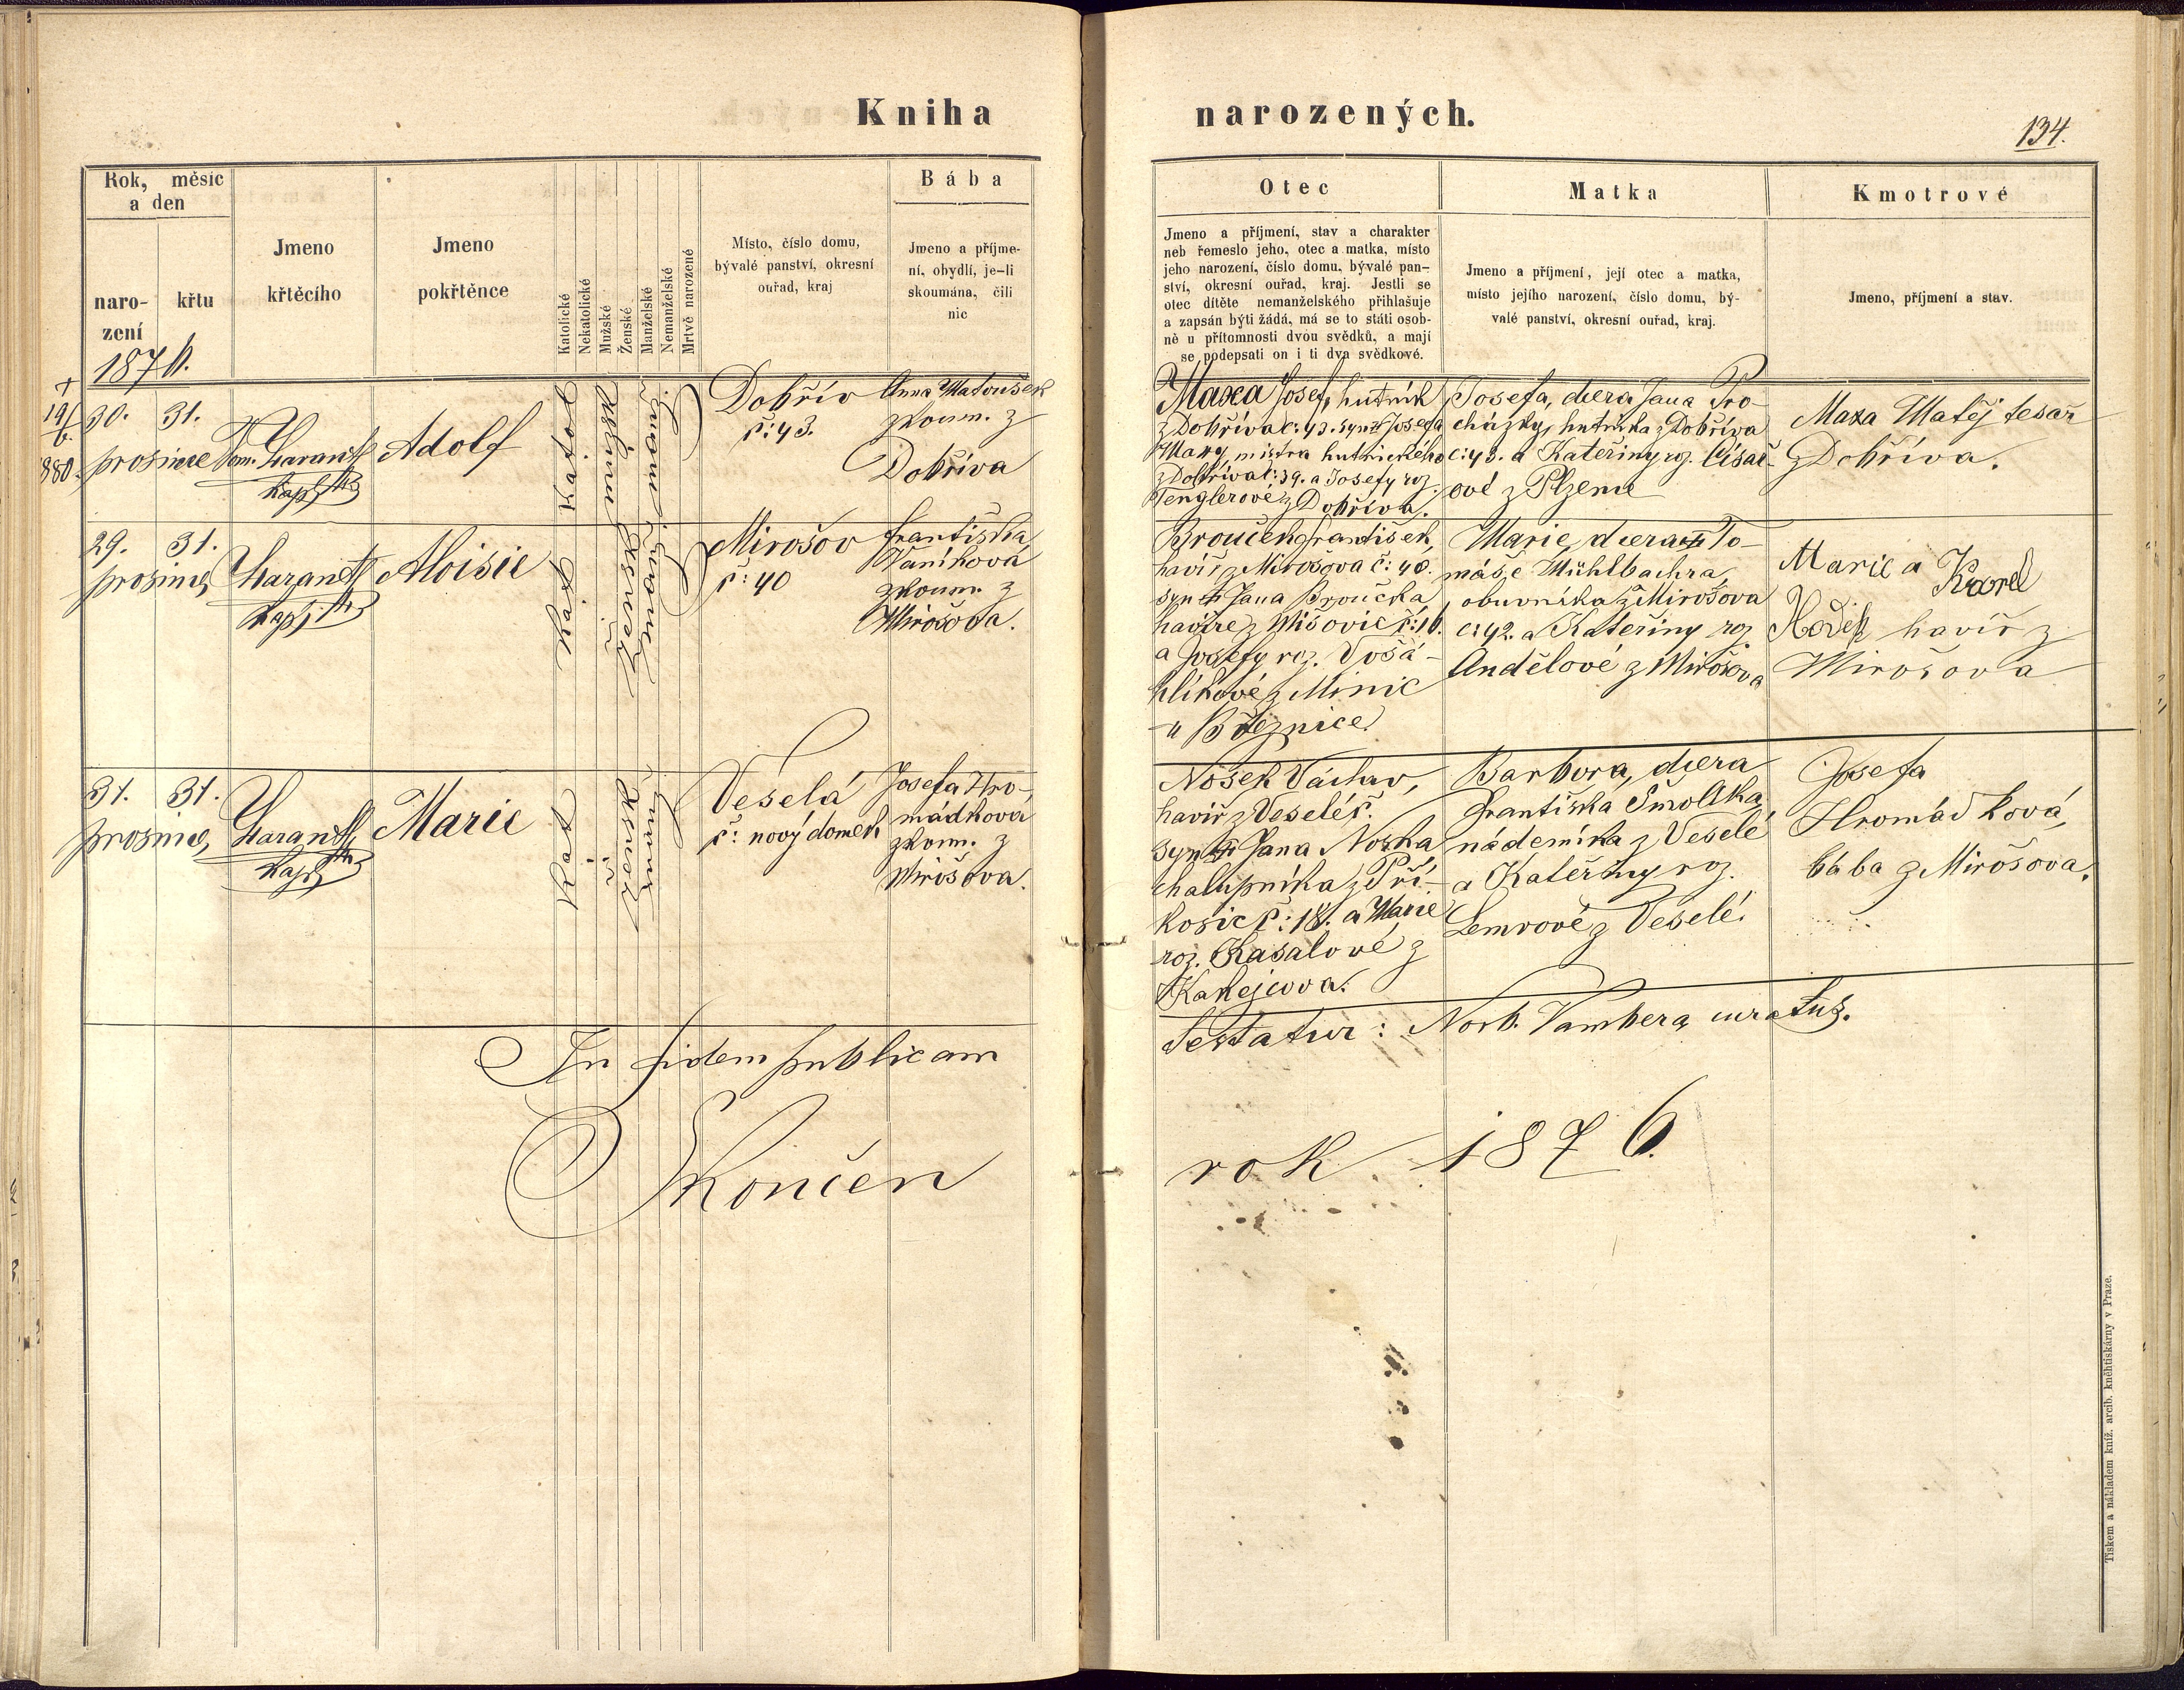 Kniha narozených.
134.
Rok, měsíc
a den
naro-
zení
křtu
Jmeno
křtěcího
Jmeno
pokřtěnce
Katolické
Nekatolické
Mužské
Ženské
Manželské
Nemanželské
Mrtvě narozené
Místo, číslo domu,
bývalé panství, okresní
ouřad, kraj
Bába
Jmeno a příjme-
ní, obydlí, je-li
skoumána, čili
nic
Otec
Jmeno a příjmení, stav a charakter
neb řemeslo jeho, otec a matka, místo
jeho narození, číslo domu, bývalé pan-
ství, okresní ouřad, kraj. Jestli se
otec dítěte nemanželského přihlašuje
a zapsán býti žádá, má se to státi osob-
ně u přítomnosti dvou svědků, a mají
se podepsati on i ti dva svědkové.
Matka
Jmeno a příjmení, její otec a matka,
místo jejího narození, číslo domu, bý-
valé panství, okresní ouřad, kraj.
Kmotrové
Jmeno, příjmení a stav.
1876.
†
19/
6.
880.
30. 31.
prosince
Harant
kapl
Adolf
Katol
mužské
manž.
Dobřív
č: 43.
Anna Matoušek
zkoum. z
Dobříva
Maxa Josef, hutník
z Dobříva č: 43. syn Josefa
Maxy, mistra hutnického
z Dobříva č: 39. a Josefy roz.
Tenglerové z Dobříva.
Josefa, dcera Jana Pro-
cházky, hutníka z Dobříva
č: 43. a Kateřiny roz. Císař-
ové z Plzeně
Maxa Matěj tesař
z Dobříva.
29. 31.
prosince
Harant
kapl
Aloisie
Kat
ženské
manž.
Mirošov
č: 40
Františka
Vaníková
zkoum. z
Mirošova.
Brouček František,
havíř z Mirošova č: 40.
syn Jana Broučka,
havíře z Mišovic č: 16.
a Josefy roz. Vošá-
hlíkové z Minic
u Březnice.
Marie, dcera To-
máše Mühlbachra,
obuvníka z Mirošova
č: 42. a Kateřiny roz.
Andělové z Mirošova
Marie a Karel
havíř z
Mirošova
31. 31.
prosince,
Harant
kapl
Marie
Kat
ženské
manž.
Veselá
č: nový domek
Josefa Hro-
mádková
zkoum. z
Mirošova.
Nosek Václav,
havíř z Veselé č.
syn Jana Noska
chalupníka z Pří-
kosic č: 18. a Marie
roz. Kasalové z
Kakejcova.
Barbora, dcera
Františka Smolíka,
nádeníka z Veselé
a Kateřiny roz.
Lemrové z Veselé.
Josefa
Hromádková,
bába z Mirošova.
In fidem publicam
Testatur: Norb. Vambera, curatus.
Skončen rok 1876.
Tiskem a nákladem kníž. arcib. kněhtiskárny v Praze.